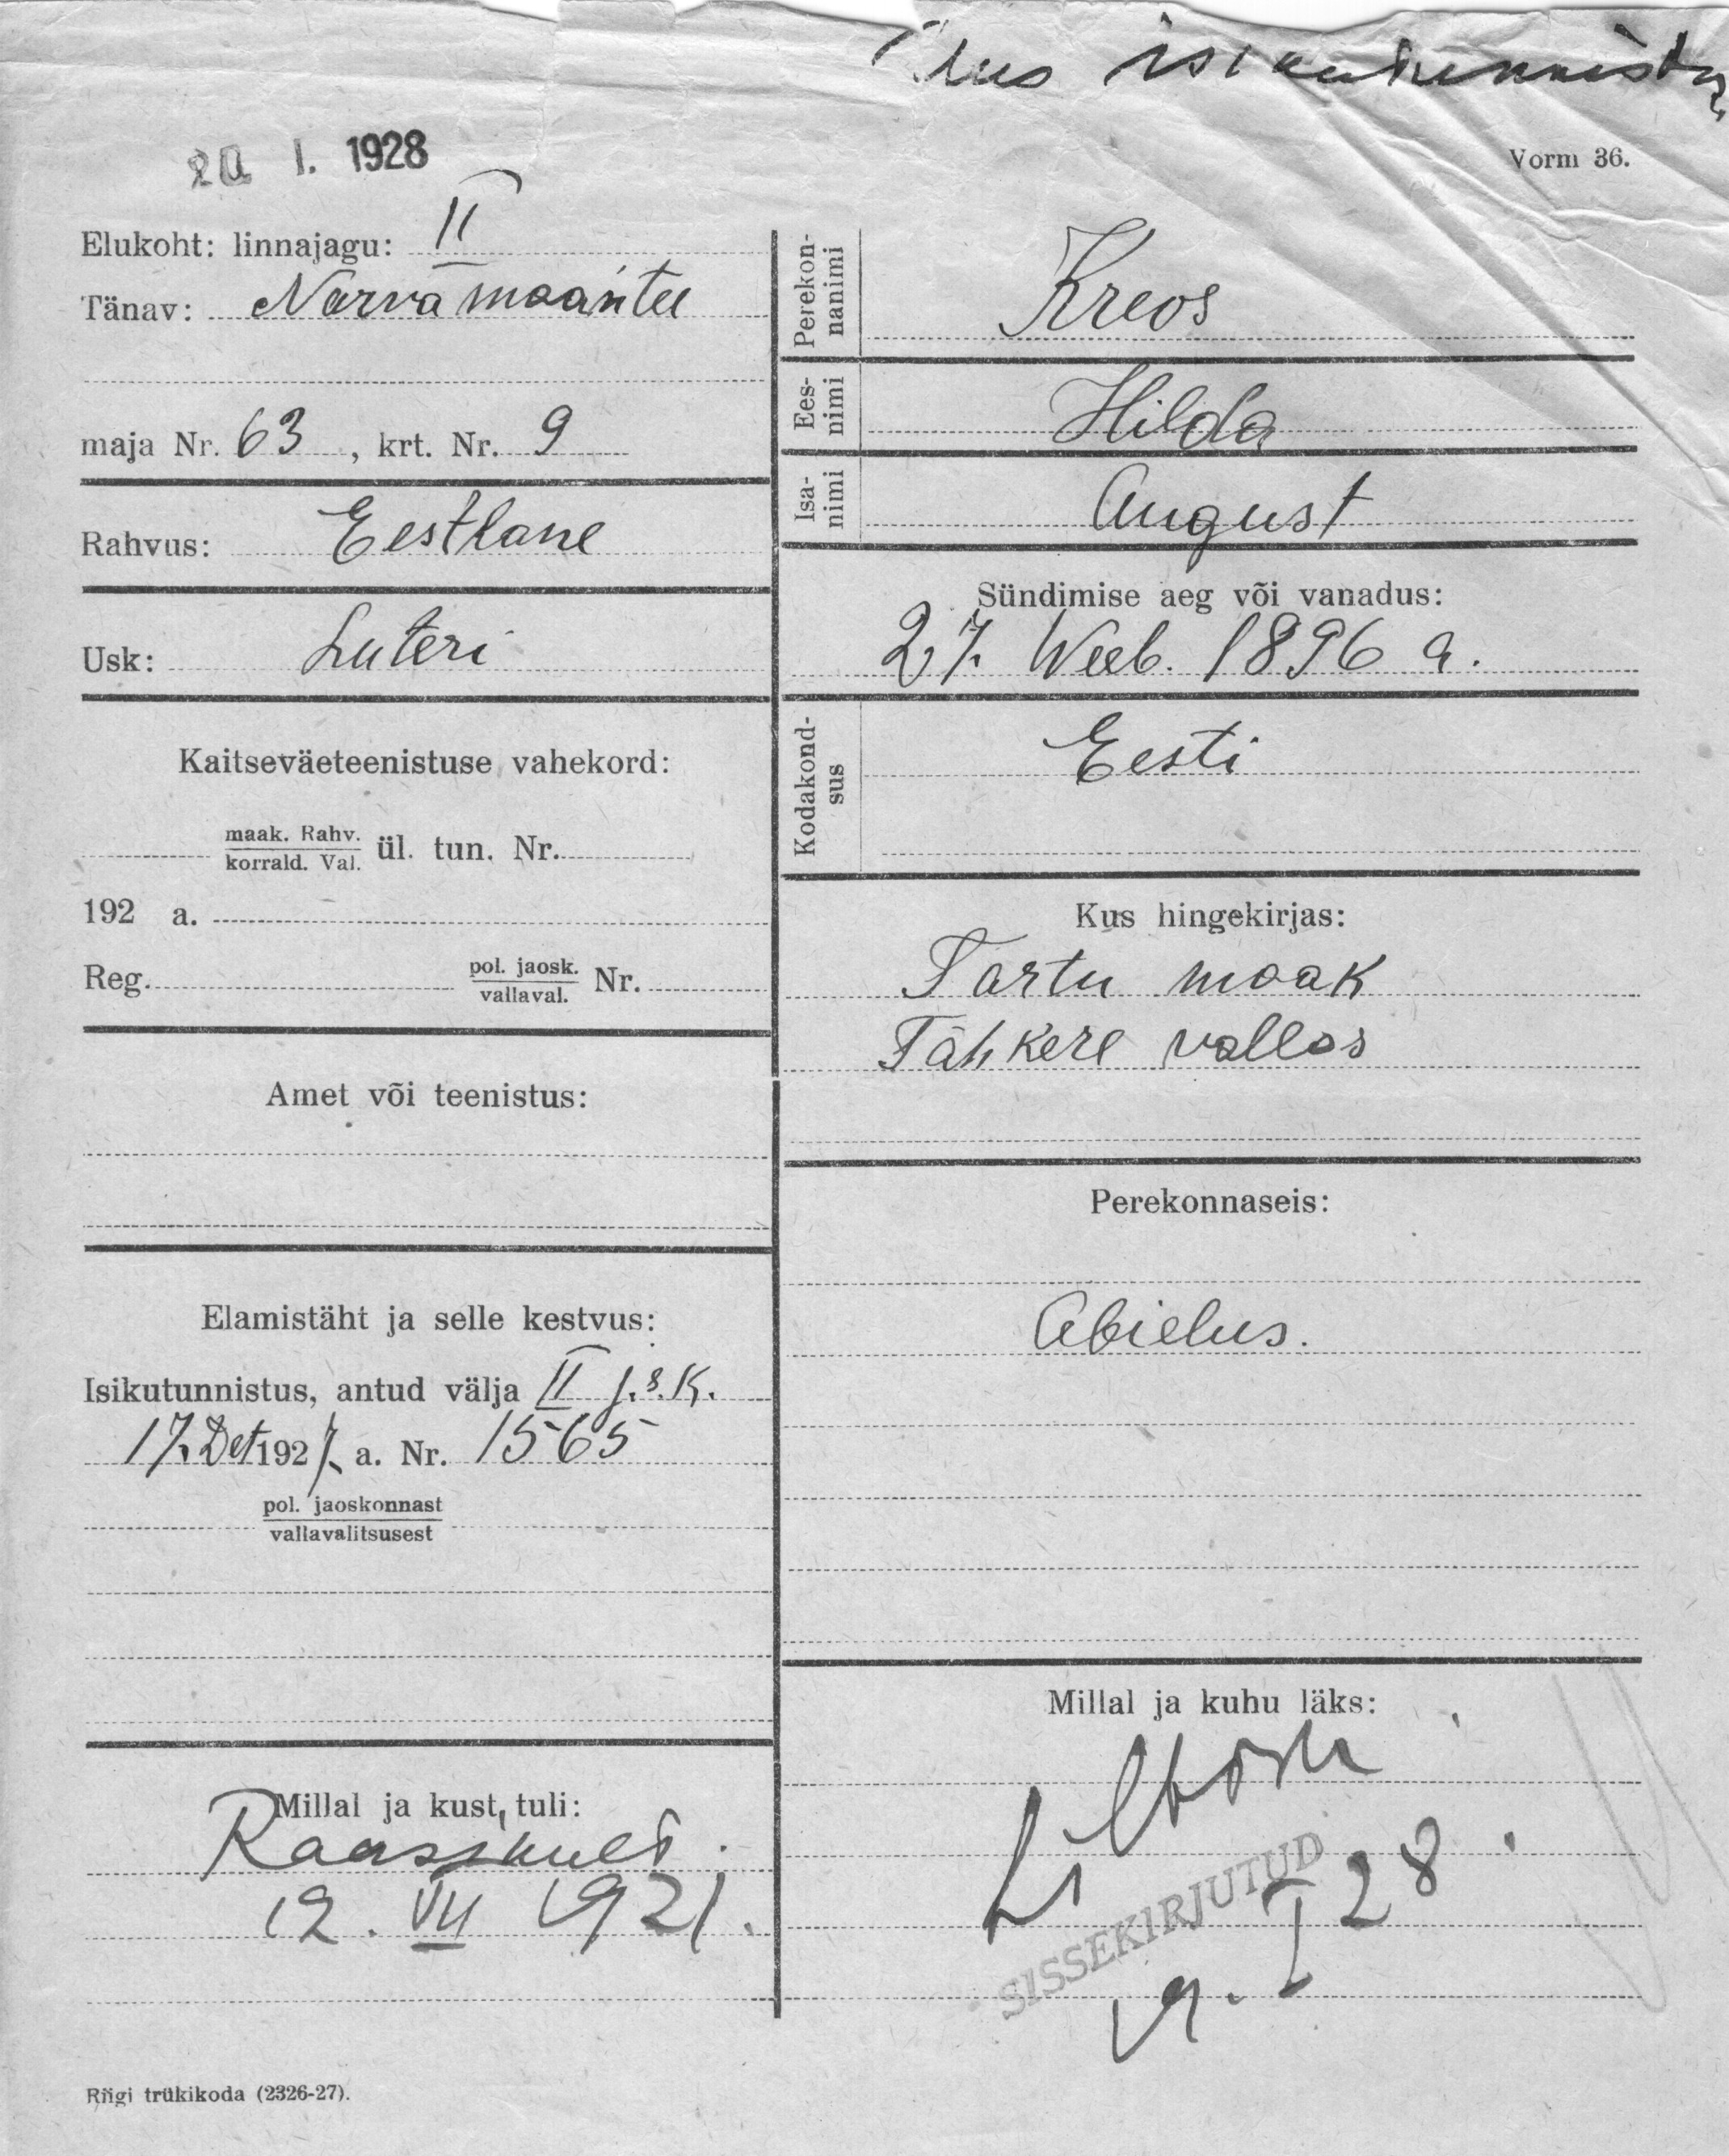 isikutunnistus
20 I. 1928
Vorm 36.
Elukoht: linnajagu: II
Tänav: Narva maantee
maja Nr. 63, krt. Nr. 9
Rahvus: Eestlane
Usk: Luteri
Kaitseväeteenistuse vahekord:
maak. Rahv.
korrald. Val. ül. tun. Nr.
192 a.
Reg. pol. jaosk.
vallaval. Nr.
Amet või teenistus:
Elamistäht ja selle kestvus:
Isikutunnistus, antud välja II j.s.k.
17. Det 1927. a. Nr. 1565
pol. jaoskonnast
vallavalitsusest
Millal ja kust tuli:
12. VII 1921.
Perekon-
nanimi
Kreos
Ees-
nimi
Hilda
Isa-
nimi
August
Sündimise aeg või vanadus:
27. Weeb. 1896 a.
Kodakond-
sus
Eesti
Kus hingekirjas:
Tartu maak
Tähkere vallas
Perekonnaseis:
Abielus.
Millal ja kuhu läks:
SISSEKIRJUTUD
I 28
Riigi trükikoda (2326-27).